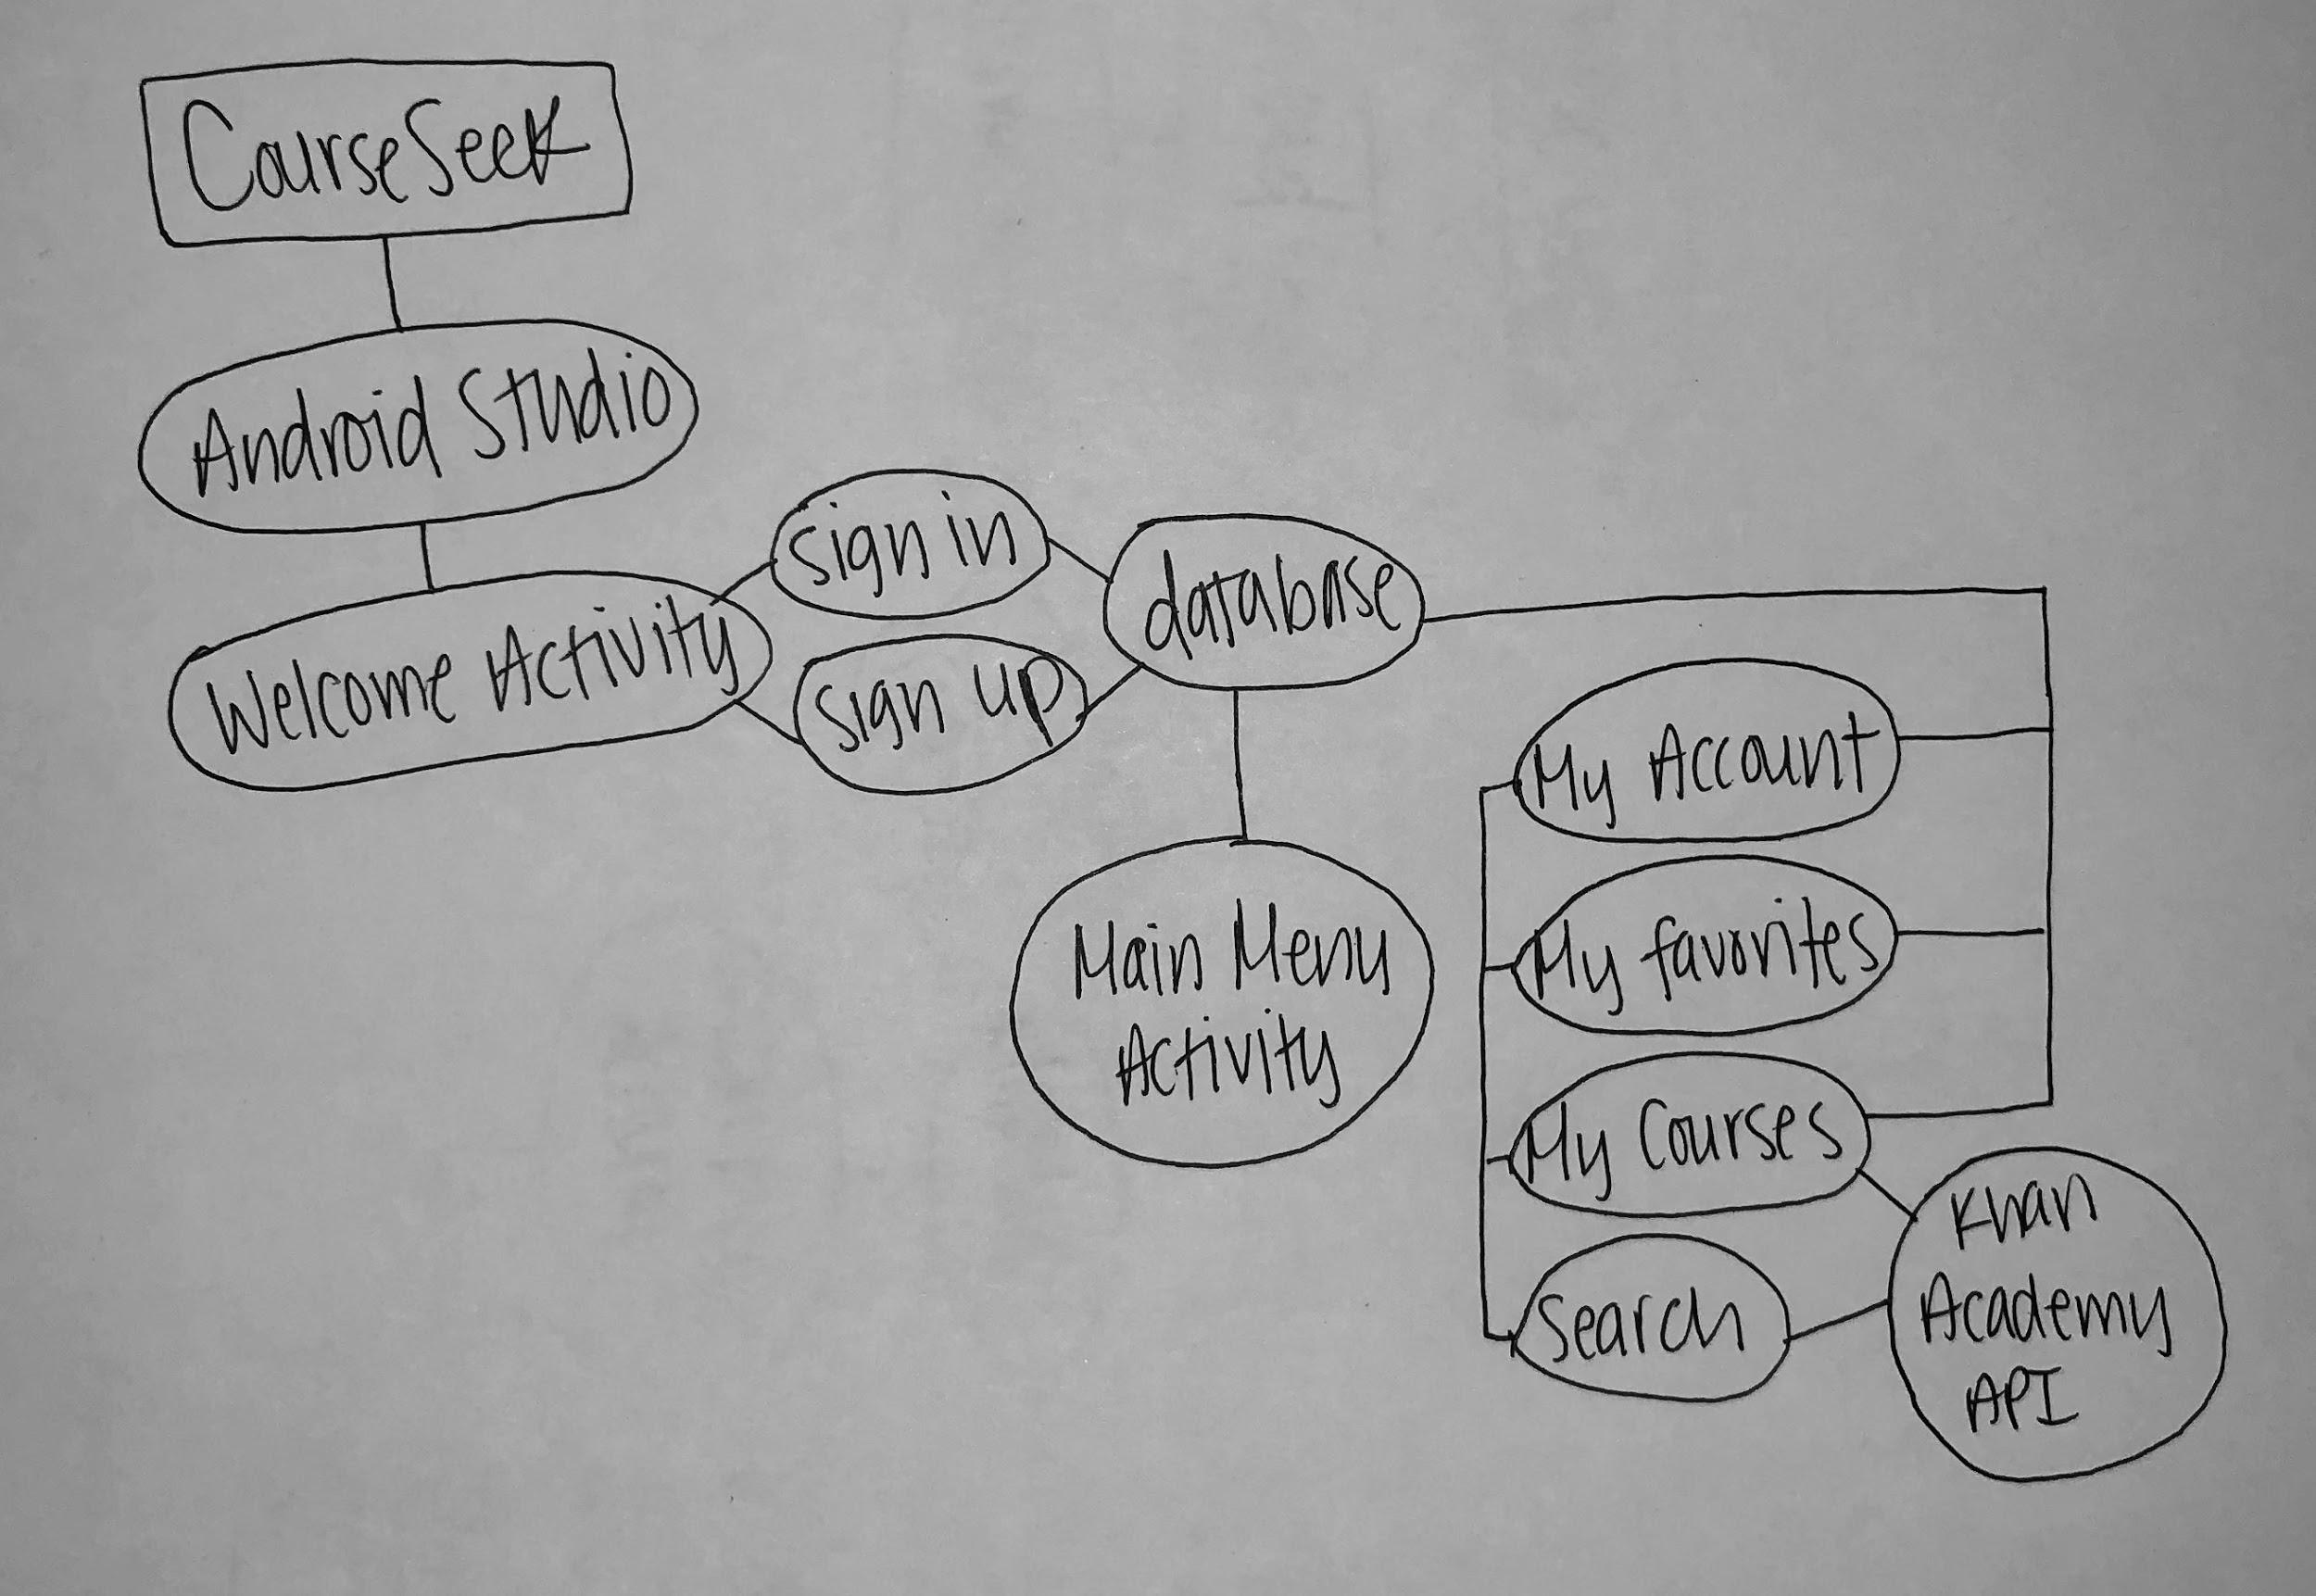 CourseSeek
Android Studio
Welcome Activity
sign in
sign up
database
Main Menu
Activity
My Account
My favorites
My Courses
Search
Khan
Academy
API